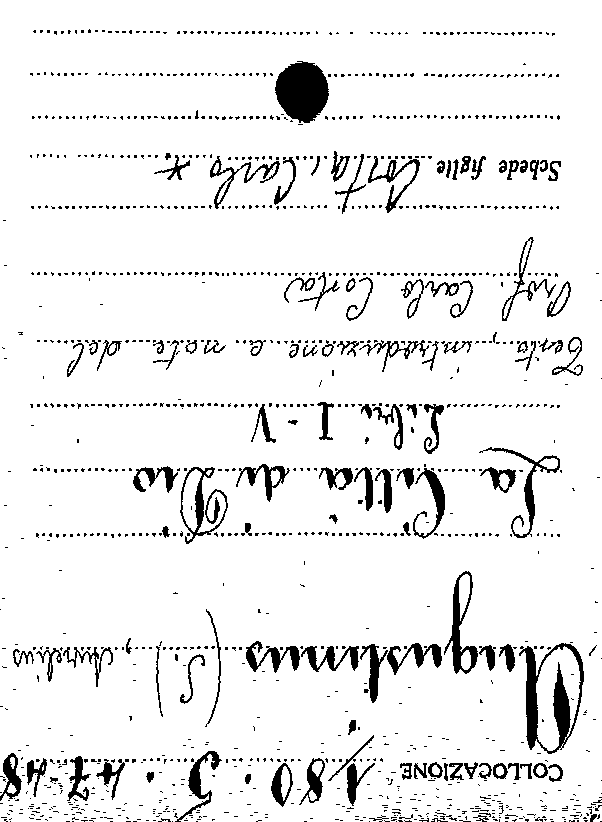 COLLOCAZIONE 180.5.47-48
Augustinus (S.), Aurelius
La Città di Dio
Libri I-V
Testo, introduzione e note del
Prof. Carlo Costa
Schede figlie Costa, Carlo *